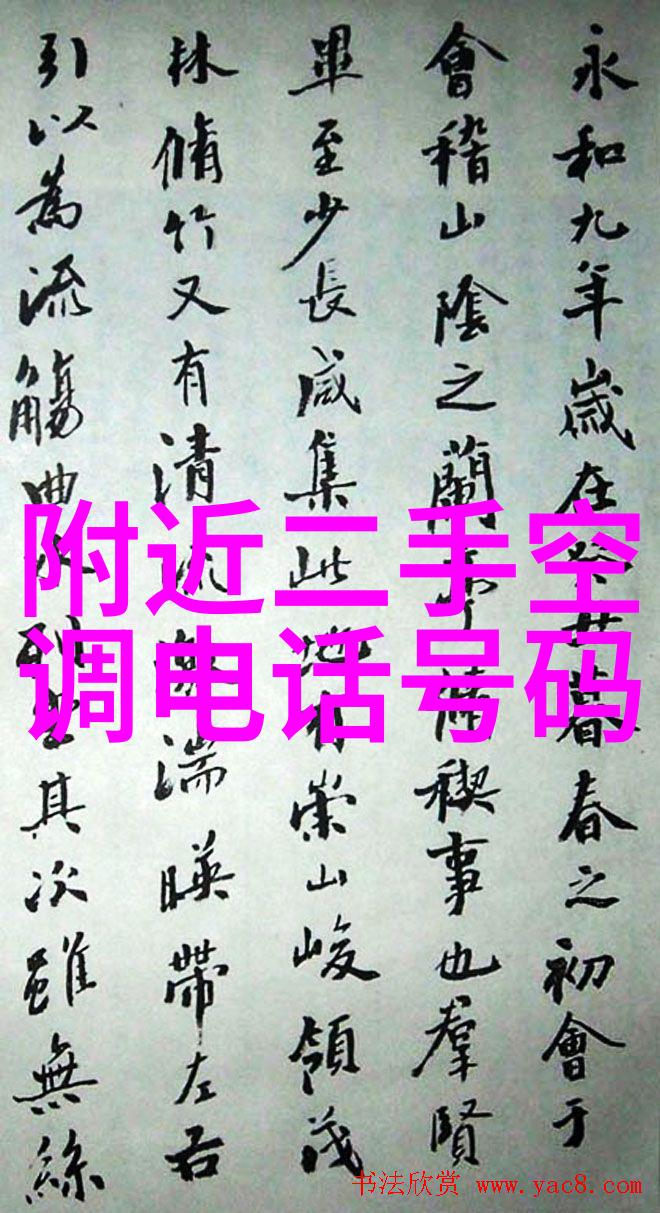 永和九年歲在癸丑暮春之初會于
會稽山陰之蘭亭脩禊事也羣賢
畢至少長咸集此地有崇山峻領茂
林脩竹又有清流激湍暎帶左右
引以為流觴曲水列坐其次雖無絲
附近二手空
调电话号码
书法欣赏 www.yac8.com